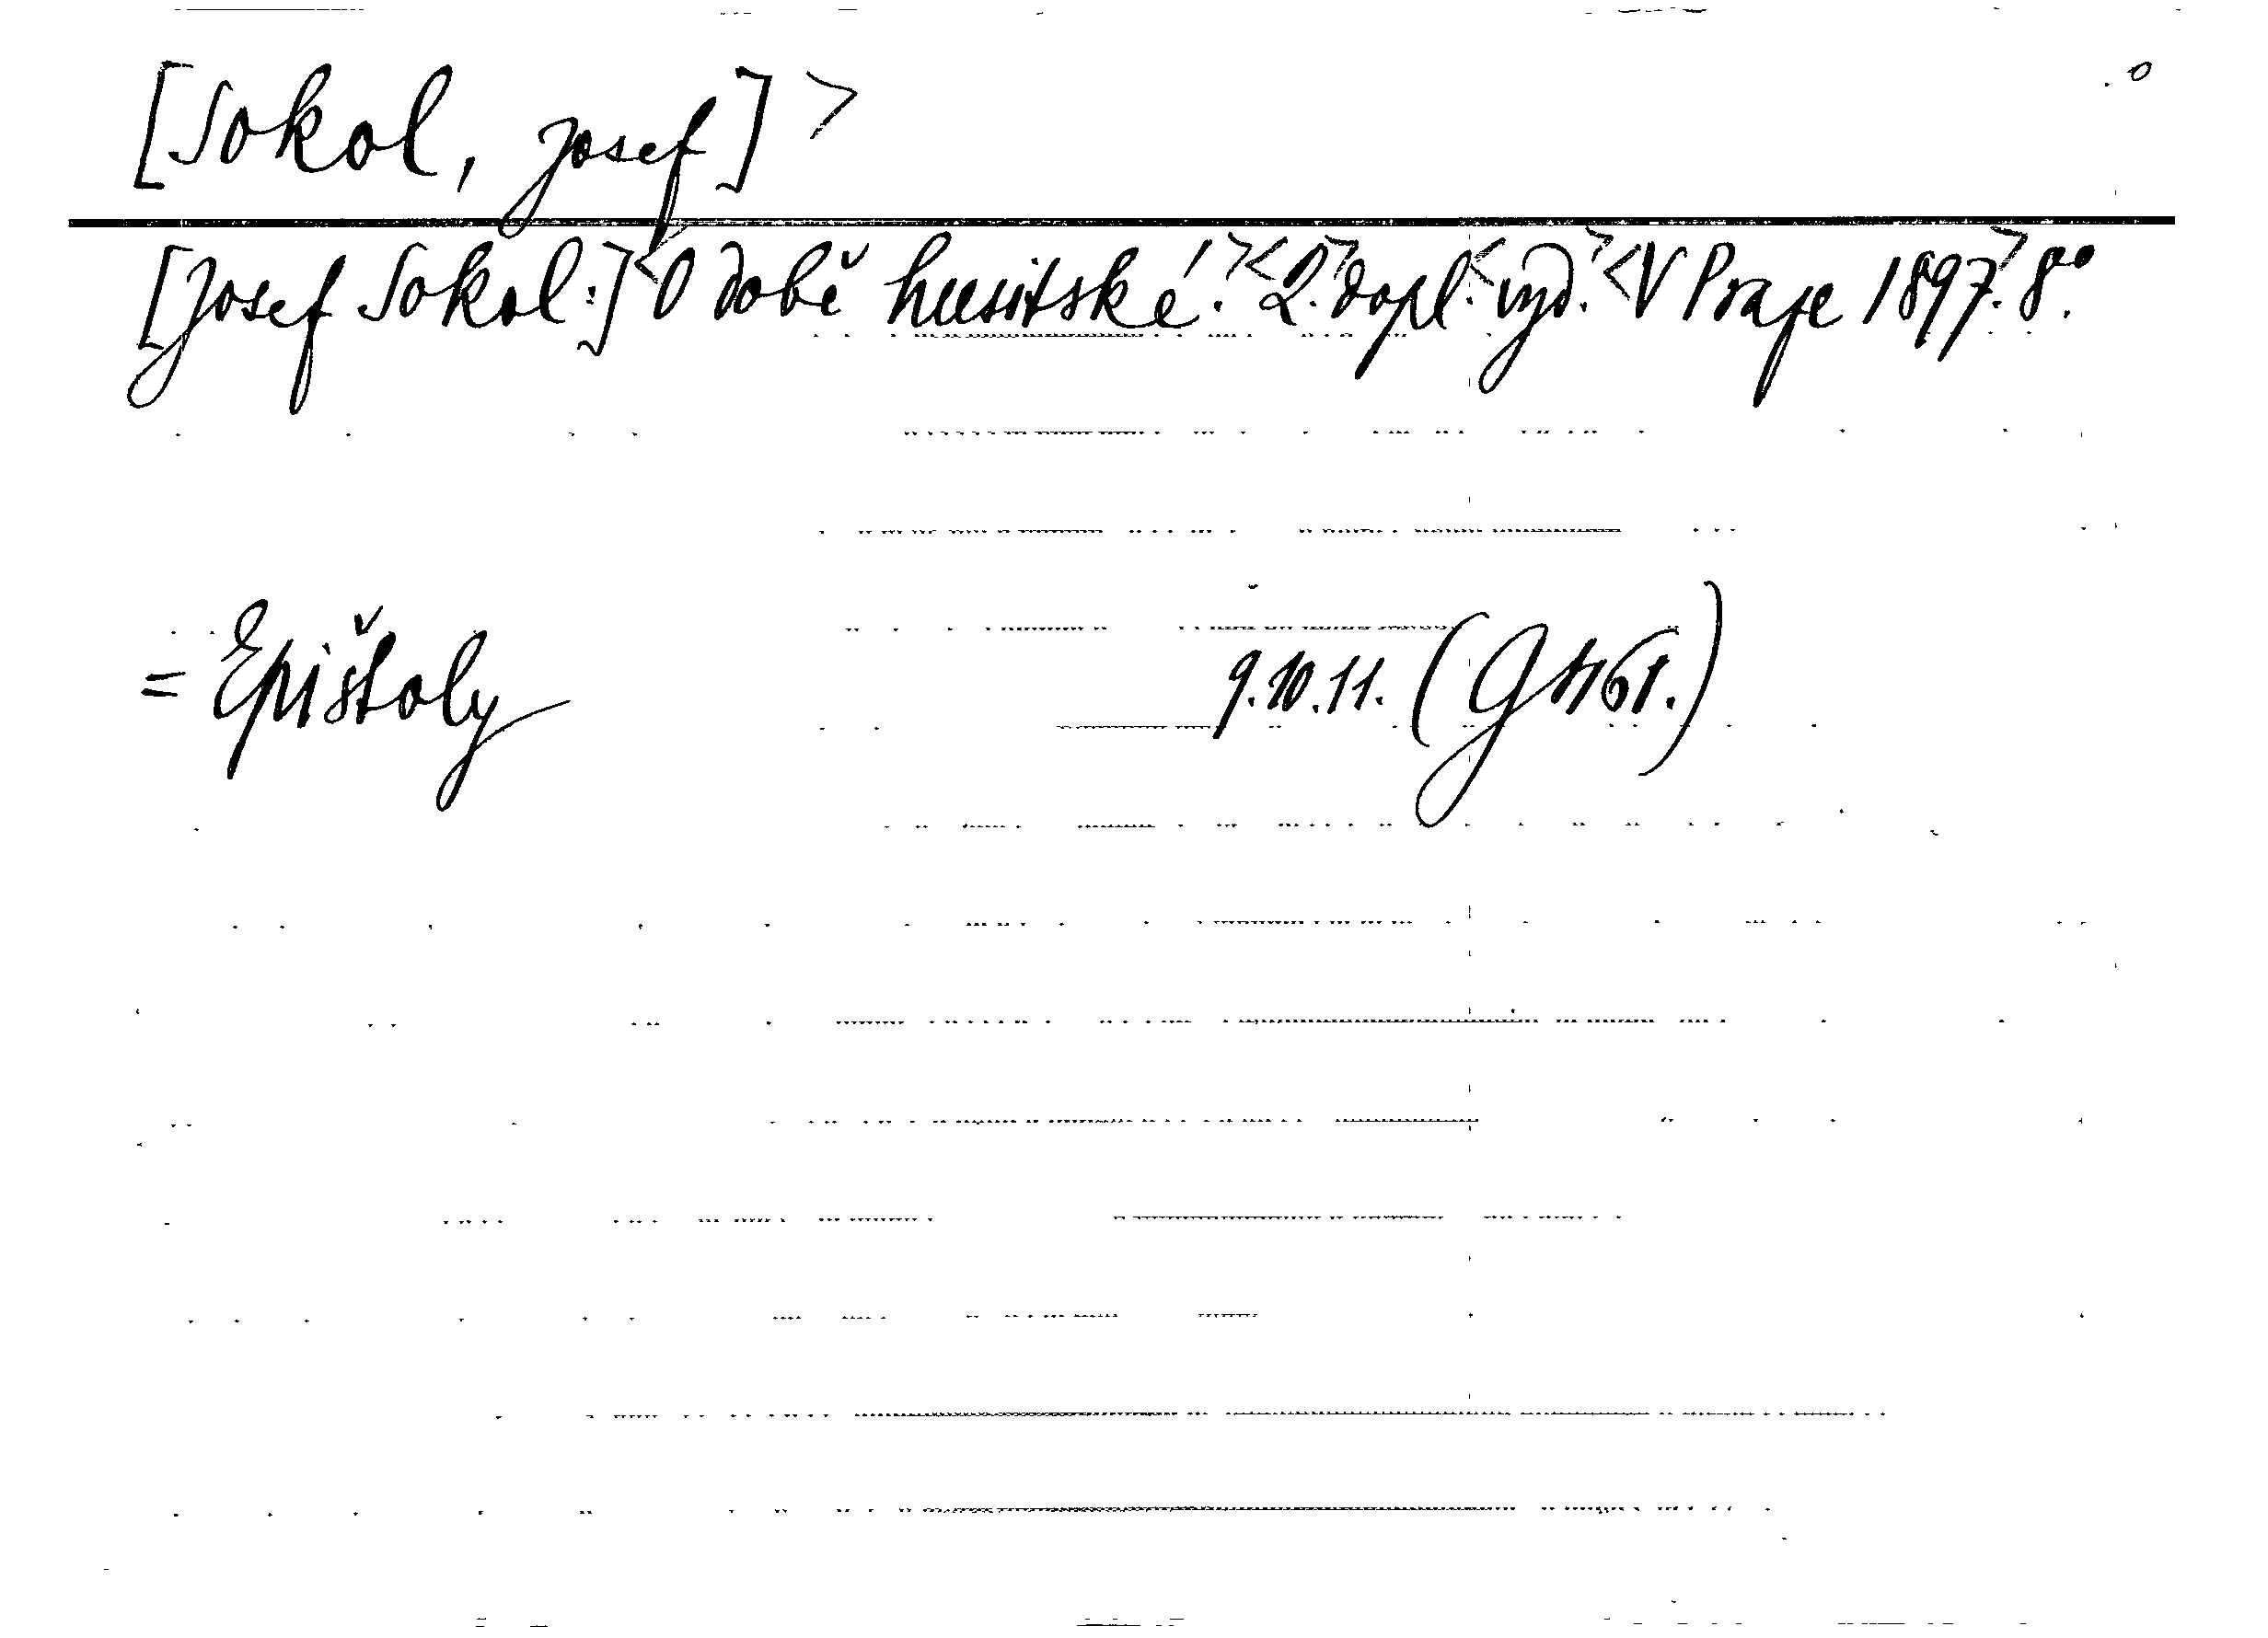 [Sokol, Josef] >
[Josef Sokol:] < O době husitské. > < 2. > dopl. < vyd. > < V Praze 1897. > 8°.
= Epištoly 9.10.11. (G